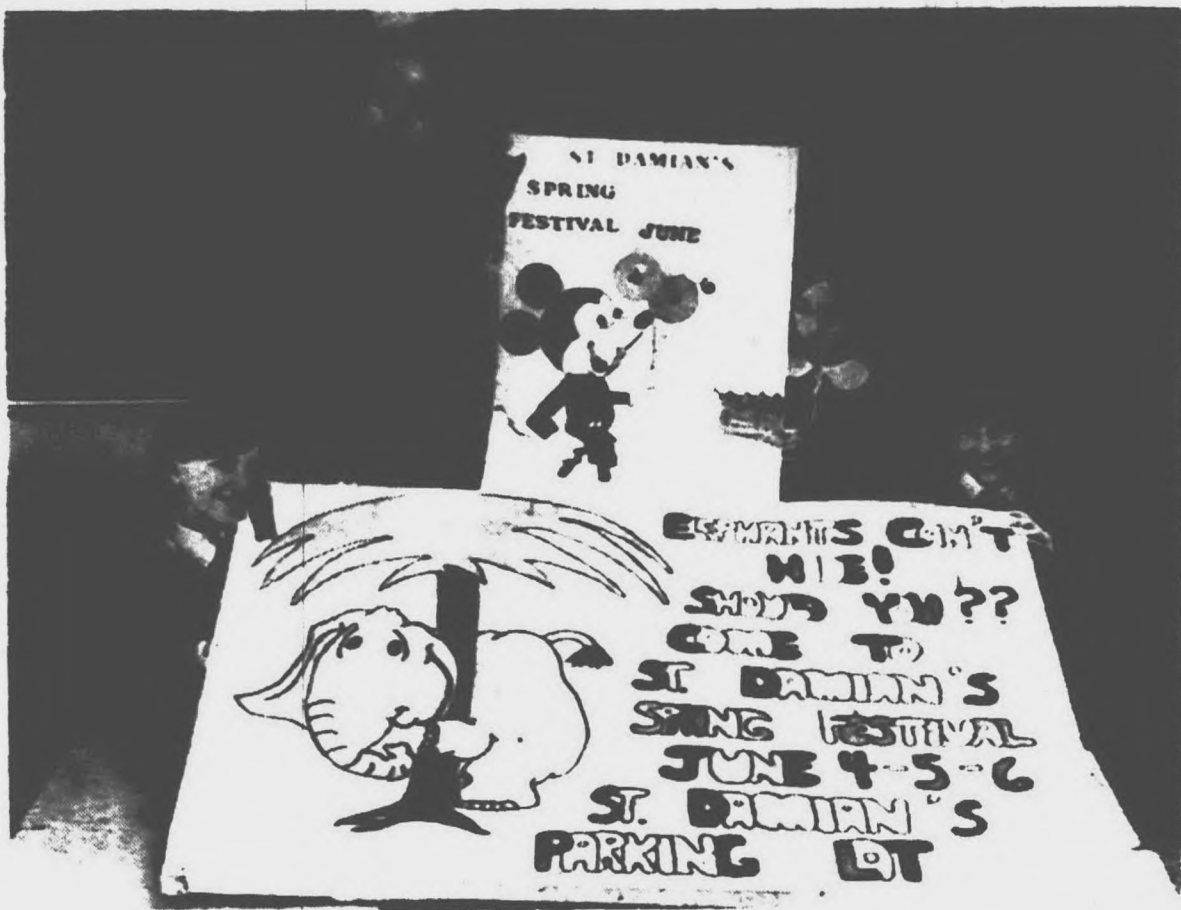 ST DAMIAN'S
SPRING
FESTIVAL JUNE
ELEPHANTS CAN'T
HIDE!
SHOULD YOU??
COME TO
ST. DAMIAN'S
SPRING FESTIVAL
JUNE 4-5-6
ST. DAMIAN'S
PARKING LOT